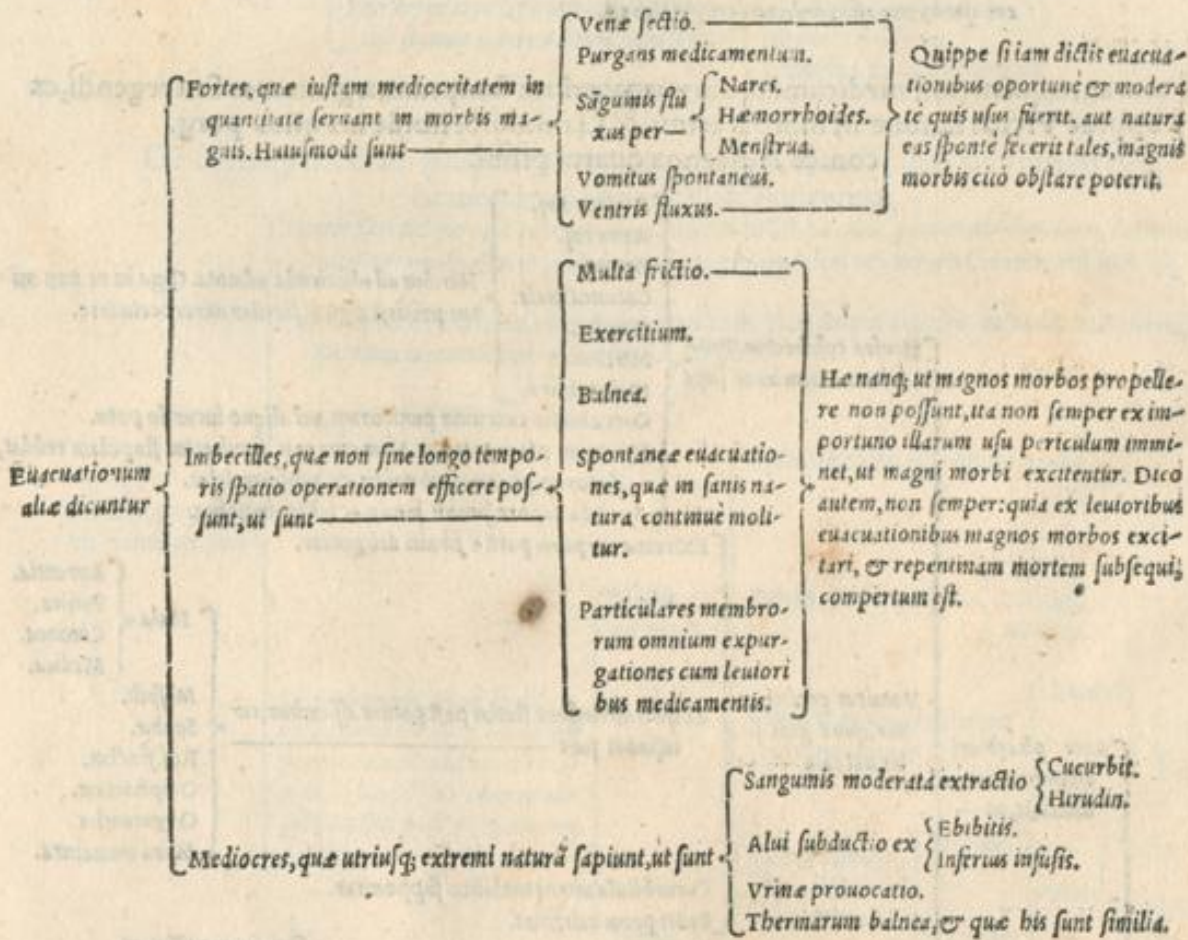 Euacuationum
aliæ dicuntur
Fortes, quæ iustam mediocritatem in
quantitate seruant in morbis ma-
gnis. Huiusmodi sunt
Venæ sectio.
Purgans medicamentum.
Sāguinis flu
xus per
Nares.
Hæmorrhoides.
Menstrua.
Vomitus spontaneus.
Ventris fluxus.
Quippe si iam dictis euacua-
tionibus oportunè & modera
tè quis usus fuerit. aut natura
eas spontè fecerit tales, magnis
morbis citò obstare poterit.
Imbecilles, quæ non sine longo tempo-
ris spatio operationem efficere pos-
sunt, ut sunt
Multa frictio.
Exercitium.
Balnea.
Spontaneæ euacuatio-
nes, quæ in sanis na-
tura continuè moli-
tur.
Particulares membro-
rum omnium expur-
gationes cum leuiori
bus medicamentis.
Hæ nanq; ut magnos morbos propelle-
re non possunt, ita non semper ex im-
portuno illarum usu periculum immi-
net, ut magni morbi excitentur. Dico
autem, non semper: quia ex leuioribus
euacuationibus magnos morbos exci-
tari, & repentinam mortem subsequi,
compertum est.
Mediocres, quæ utriusq; extremi naturā sapiunt, ut sunt
Sanguinis moderata extractio
Cucurbit.
Hirudin.
Alui subductio ex
Ebibitis.
Inferius infusis.
Vrinæ prouocatio.
Thermarum balnea, & quæ his sunt similia.